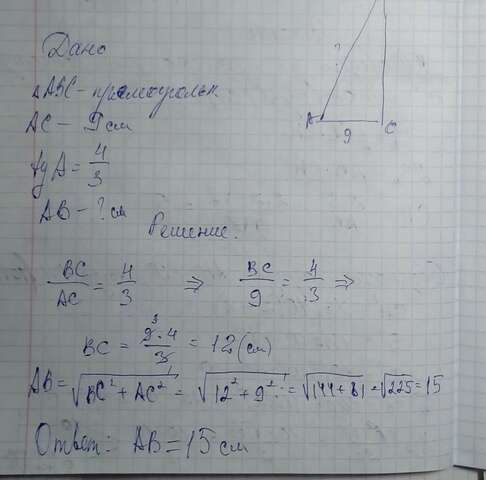 Дано
△ABC - прямоугольн.
AC - 9 см
tg A = 4/3
AB - ? см
?
A
9
C
Решение.
BC/AC = 4/3 ⇒ BC/9 = 4/3 ⇒
BC = 9·4/3 = 12 (см)
AB = √(BC² + AC²) = √(12² + 9²) = √(144 + 81) = √225 = 15
Ответ: AB = 15 см